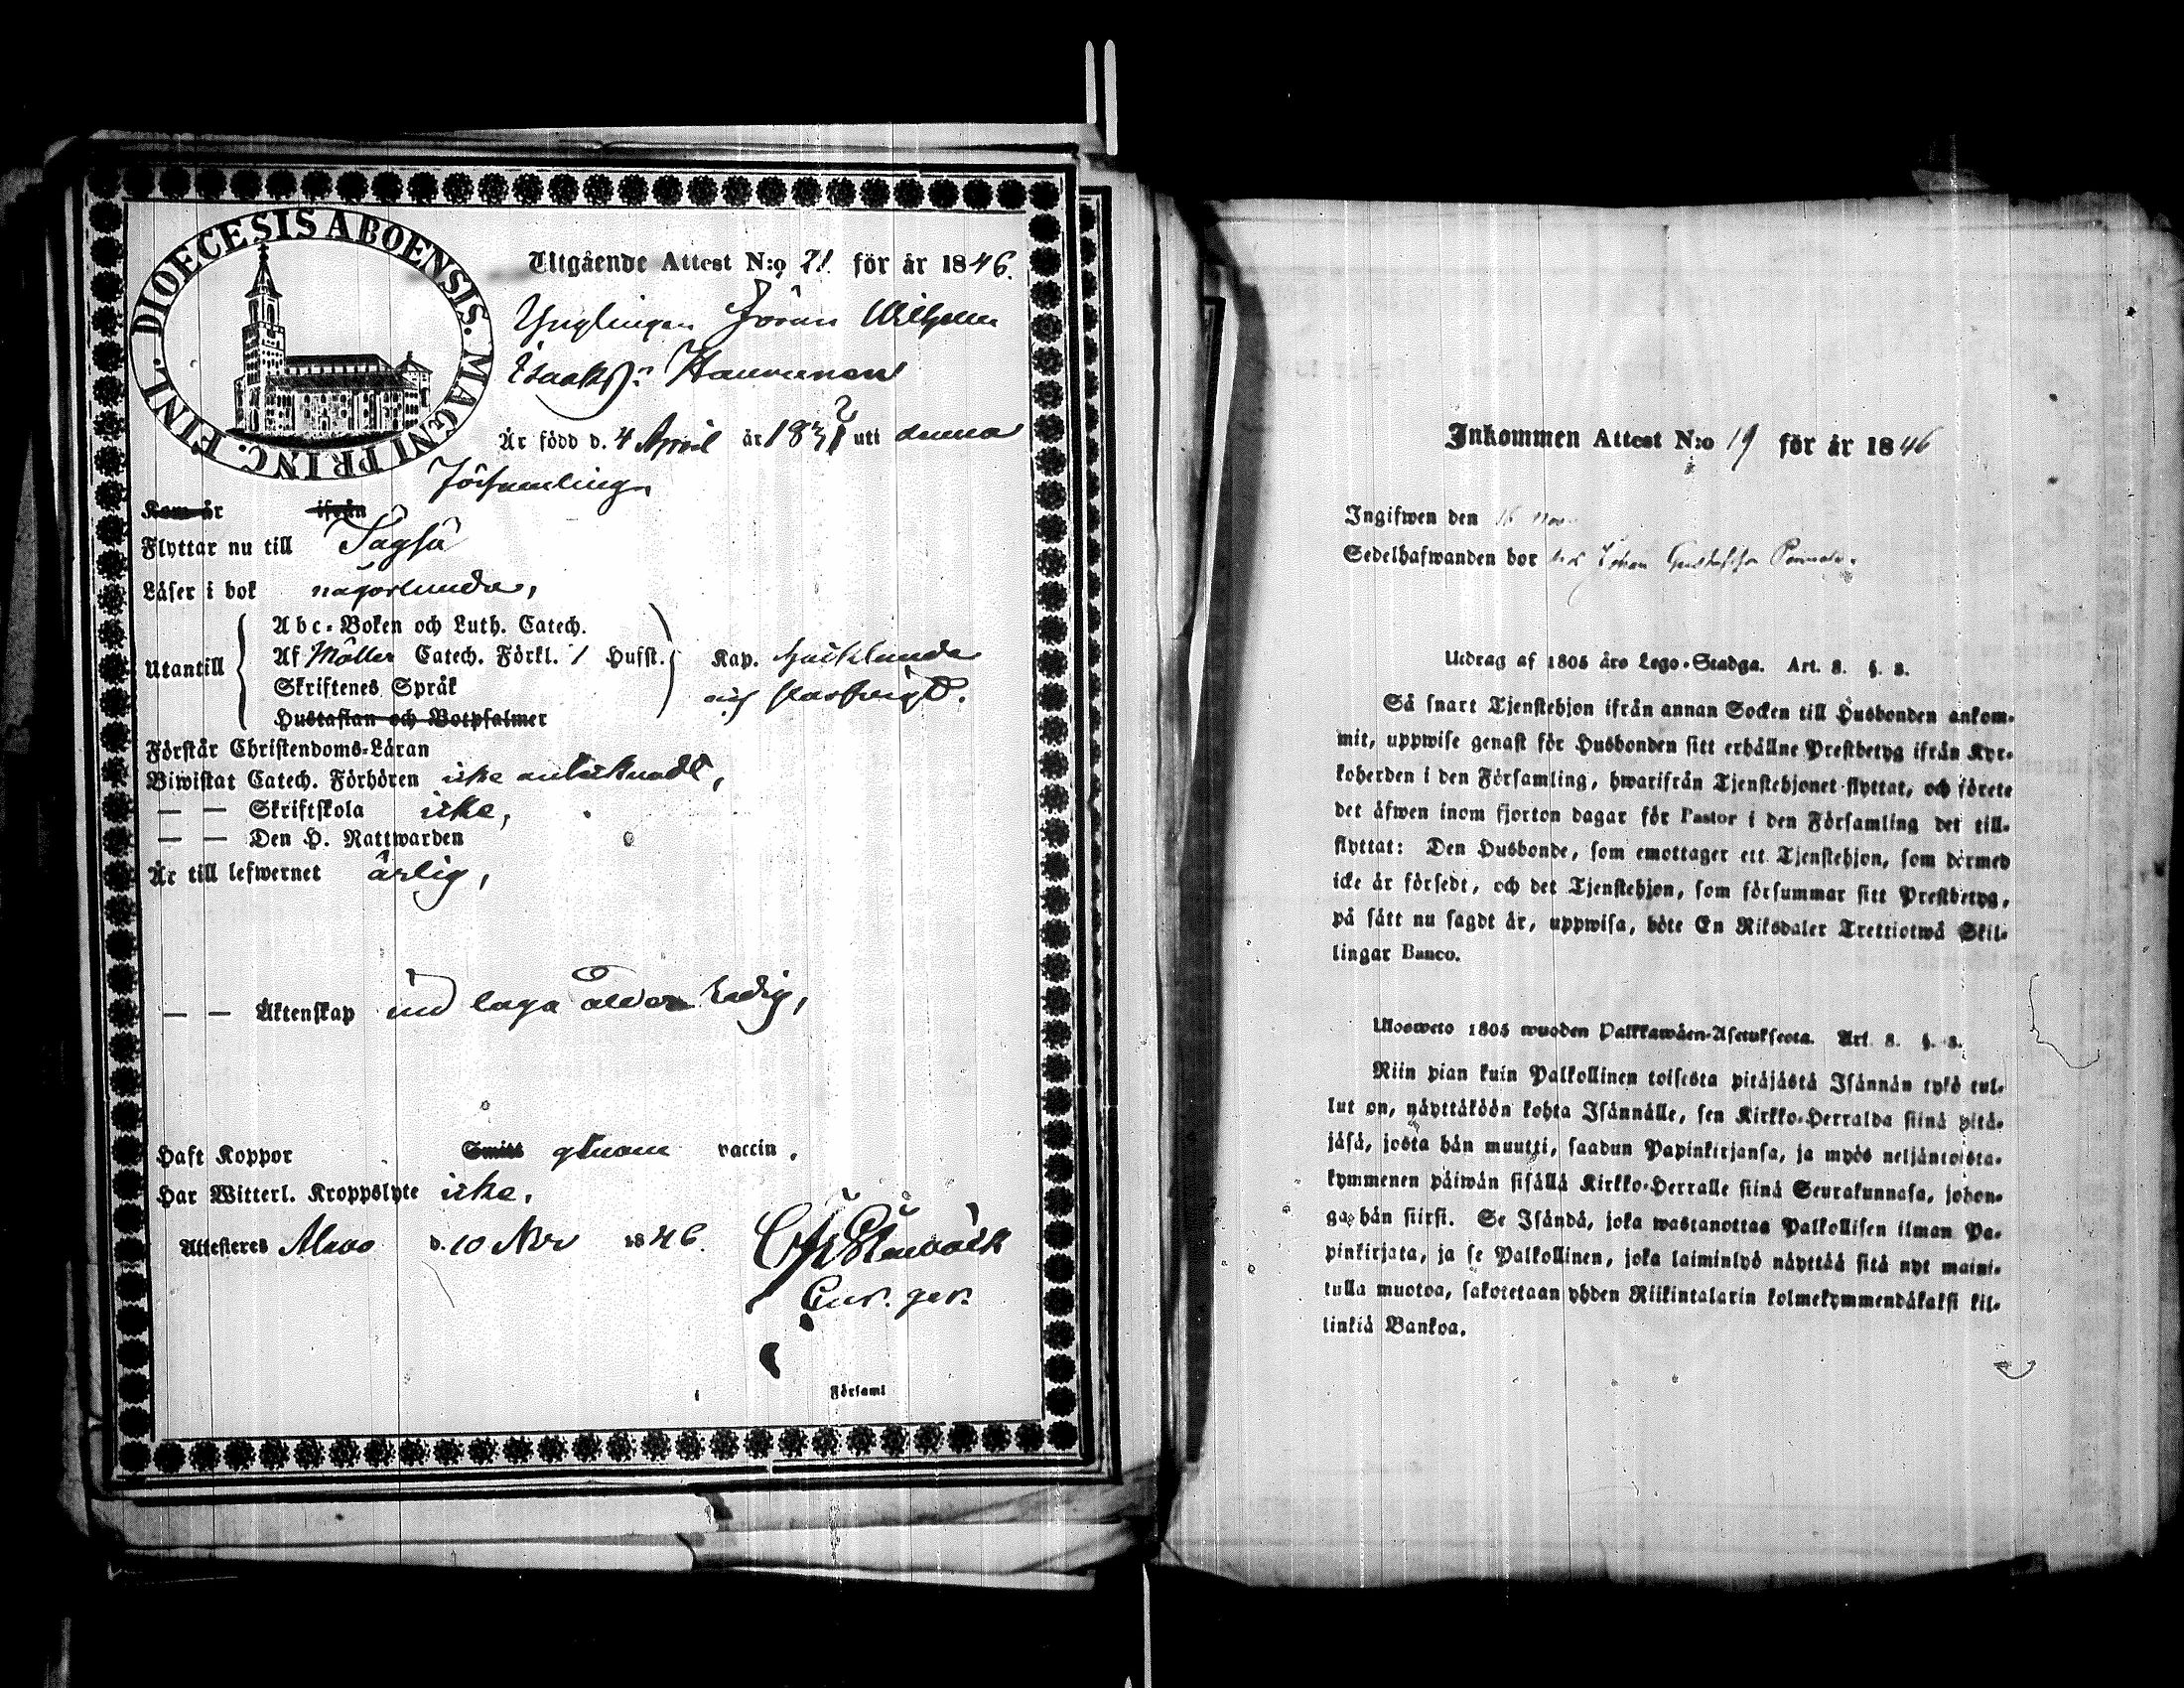 DIOECESIS ABOENSIS. MAGNI PRINC. FINL.
Utgående Attest N:o 71. för år 1846.
Ynglingen Jöran Wilhelm
Isaakss:n
Är född d. 4 April år 183 uti denna
Församling
Kom år ifrån
Flyttar nu till
Läser i bok någorlunda,
Utantill
Abc-Boken och Luth. Catech.
Af Möller Catech. Förkl. / Husst.
Skriftenes Språk
Hustaflan och Botpsalmer
Kap.
Förstår Christendoms-Läran
Biwistat Catech. Förhören icke antecknadt,
— — Skriftskola icke,
— — Den H. Nattwarden
Är till lefwernet ärlig,
— — Äktenskap vid laga ålder ledig,
Haft Koppor Smitt genom vaccin.
Har Witterl. Kroppslyte icke.
Attesteres Alavo d. 10 Nov 1846.
Församl
Inkommen Attest N:o 19 för år 1846
Ingifwen den 16 Nov.
Sedelhafwanden bor hos Johan Gustafsson
Utdrag af 1805 års Lego-Stadga. Art. 8. §. 8.
Så snart Tjenstehjon ifrån annan Socken till Husbonden ankom-
mit, uppwise genast för Husbonden sitt erhållne Prestbetyg ifrån Kyr-
koherden i den Församling, hwarifrån Tjenstehjonet flyttat, och förete
det äfwen inom fjorton dagar för Pastor i den Församling det till-
flyttat: Den Husbonde, som emottager ett Tjenstehjon, som dermed
icke är försedt, och det Tjenstehjon, som försummar sitt Prestbetyg,
på sätt nu sagdt är, uppwisa, böte En Riksdaler Trettiotwå Skil-
lingar Banco.
Ulosweto 1805 wuoden Palkkawäen-Asetuksesta. Art. 8. §. 8.
Niin pian kuin Palkollinen toisesta pitäjästä Isännän tykö tul-
lut on, näyttäköön kohta Isännälle, sen Kirkko-Herralda siinä pitä-
jäsä, josta hän muutti, saadun Papinkirjansa, ja myös neljäntoista-
kymmenen päiwän sisällä Kirkko-Herralle siinä Seurakunnasa, johon-
ga hän siirsi. Se Isändä, joka wastanottaa Palkollisen ilman Pa-
pinkirjata, ja se Palkollinen, joka laiminlyö näyttää sitä nyt maini-
tulla muotoa, sakotetaan yhden Riikintalarin kolmekymmendäkaksi kil-
linkiä Bankoa.